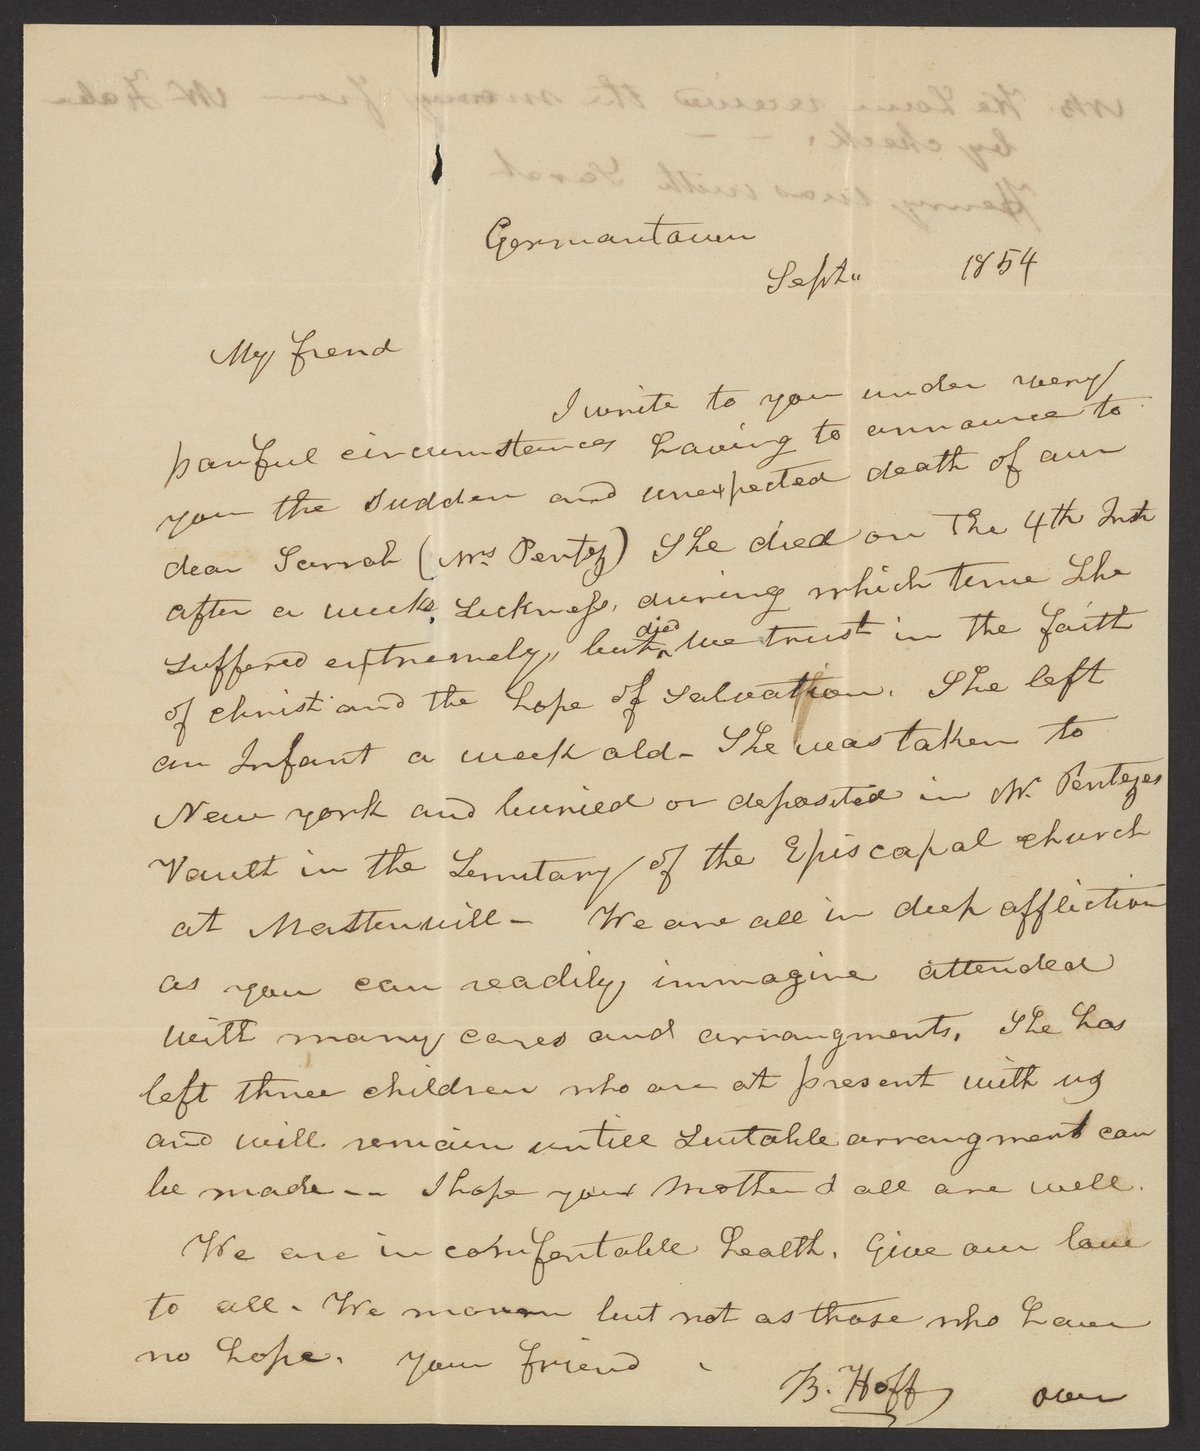 Germantown
Sept" 1854
My frend
I write to you under very
panful circumstances having to announce to
you the sudden and unexpected death of our
dear Sarrah (Mrs Pentz) She died on The 4th Inst
after a weeks sickness, during which time she
suffered extremely, but died we trust in the faith
of christ and the hope of salvation. She left
an Infant a week old - She was taken to
New york and buried or deposited in Mr. Pentzes
Vault in the Semitary of the Episcapal church
at Mastenvill - We are all in deep affliction
as you can readily immagine attended
with many cares and arrangments. She has
left three children who are at present with us
and will remain untill sutable arrangment can
be made -- I hope your mother & all are well.
We are in comfortable health. Give our love
to all. We mourn but not as those who have
no hope. Your friend
B. Hoff over